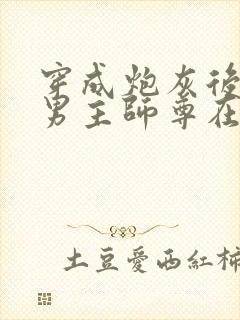 穿成炮灰後
男主師尊在
土豆愛西紅柿